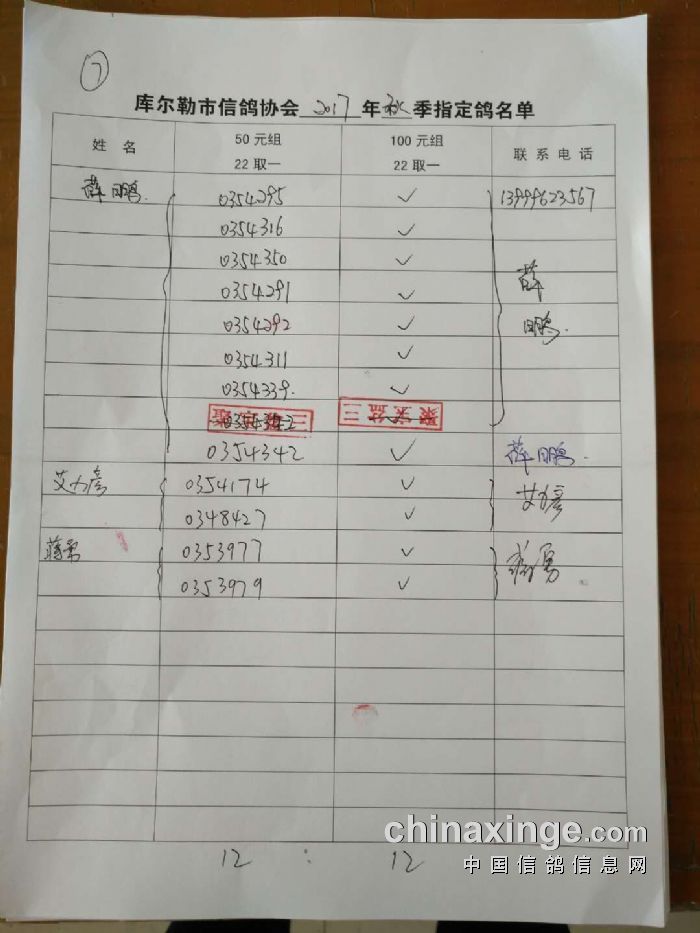 7
库尔勒市信鸽协会 2017 年 秋 季指定鸽名单
姓 名 50元组 22取一 100元组 22取一 联系电话
薛鹏. 0354295 ✓ 13999623567
0354316 ✓
0354350 ✓ 薛
0354291 ✓
0354292 ✓ 鹏.
0354311 ✓
0354339. ✓
0354342 三
0354342 ✓ 薛鹏.
0354174 ✓
0348427 ✓
蒋勇 0353977 ✓ 蒋勇
0353979 ✓
12 : 12
chinaxinge.com
中国信鸽信息网